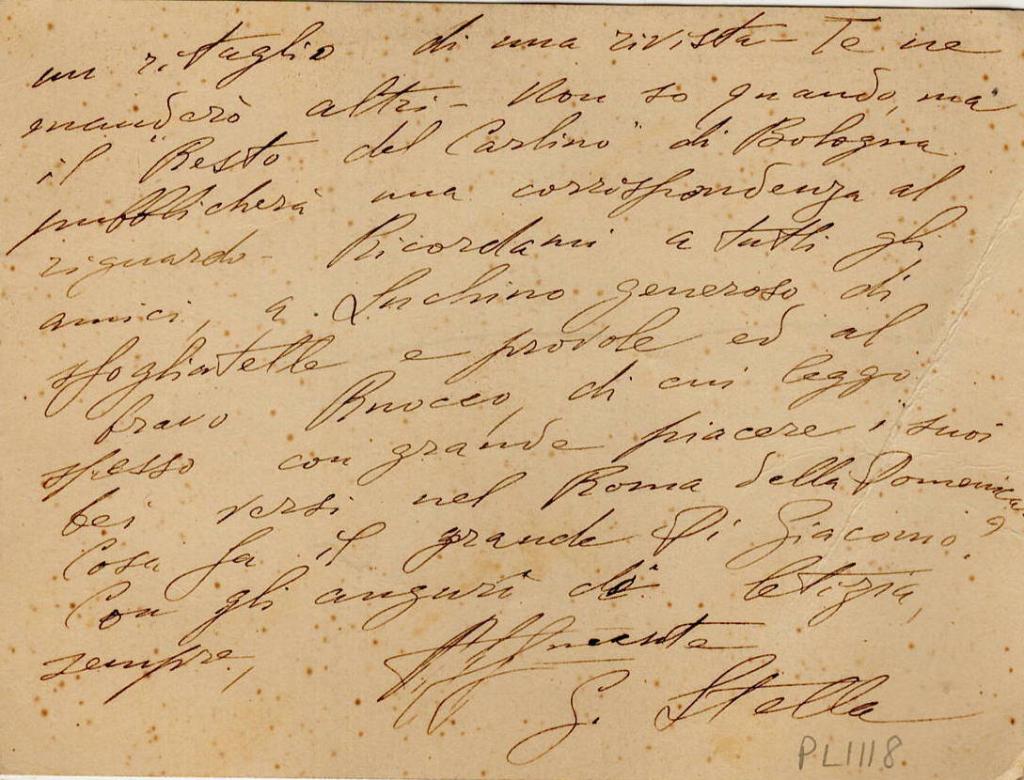 un ritaglio di una rivista - Te ne
manderò altri - Non so quando, ma
il "Resto del Carlino" di Bologna
pubblicherà una corrispondenza al
riguardo - Ricordami a tutti gli
amici, a Luchino generoso di
sfogliatelle e provole ed al
bravo Ruocco, di cui leggo
spesso con grande piacere i suoi
bei versi nel Roma della Domenica.
Cosa fa il grande Di Giacomo?
Con gli auguri di letizia,
sempre, Affmente
G. Stella
PL1118